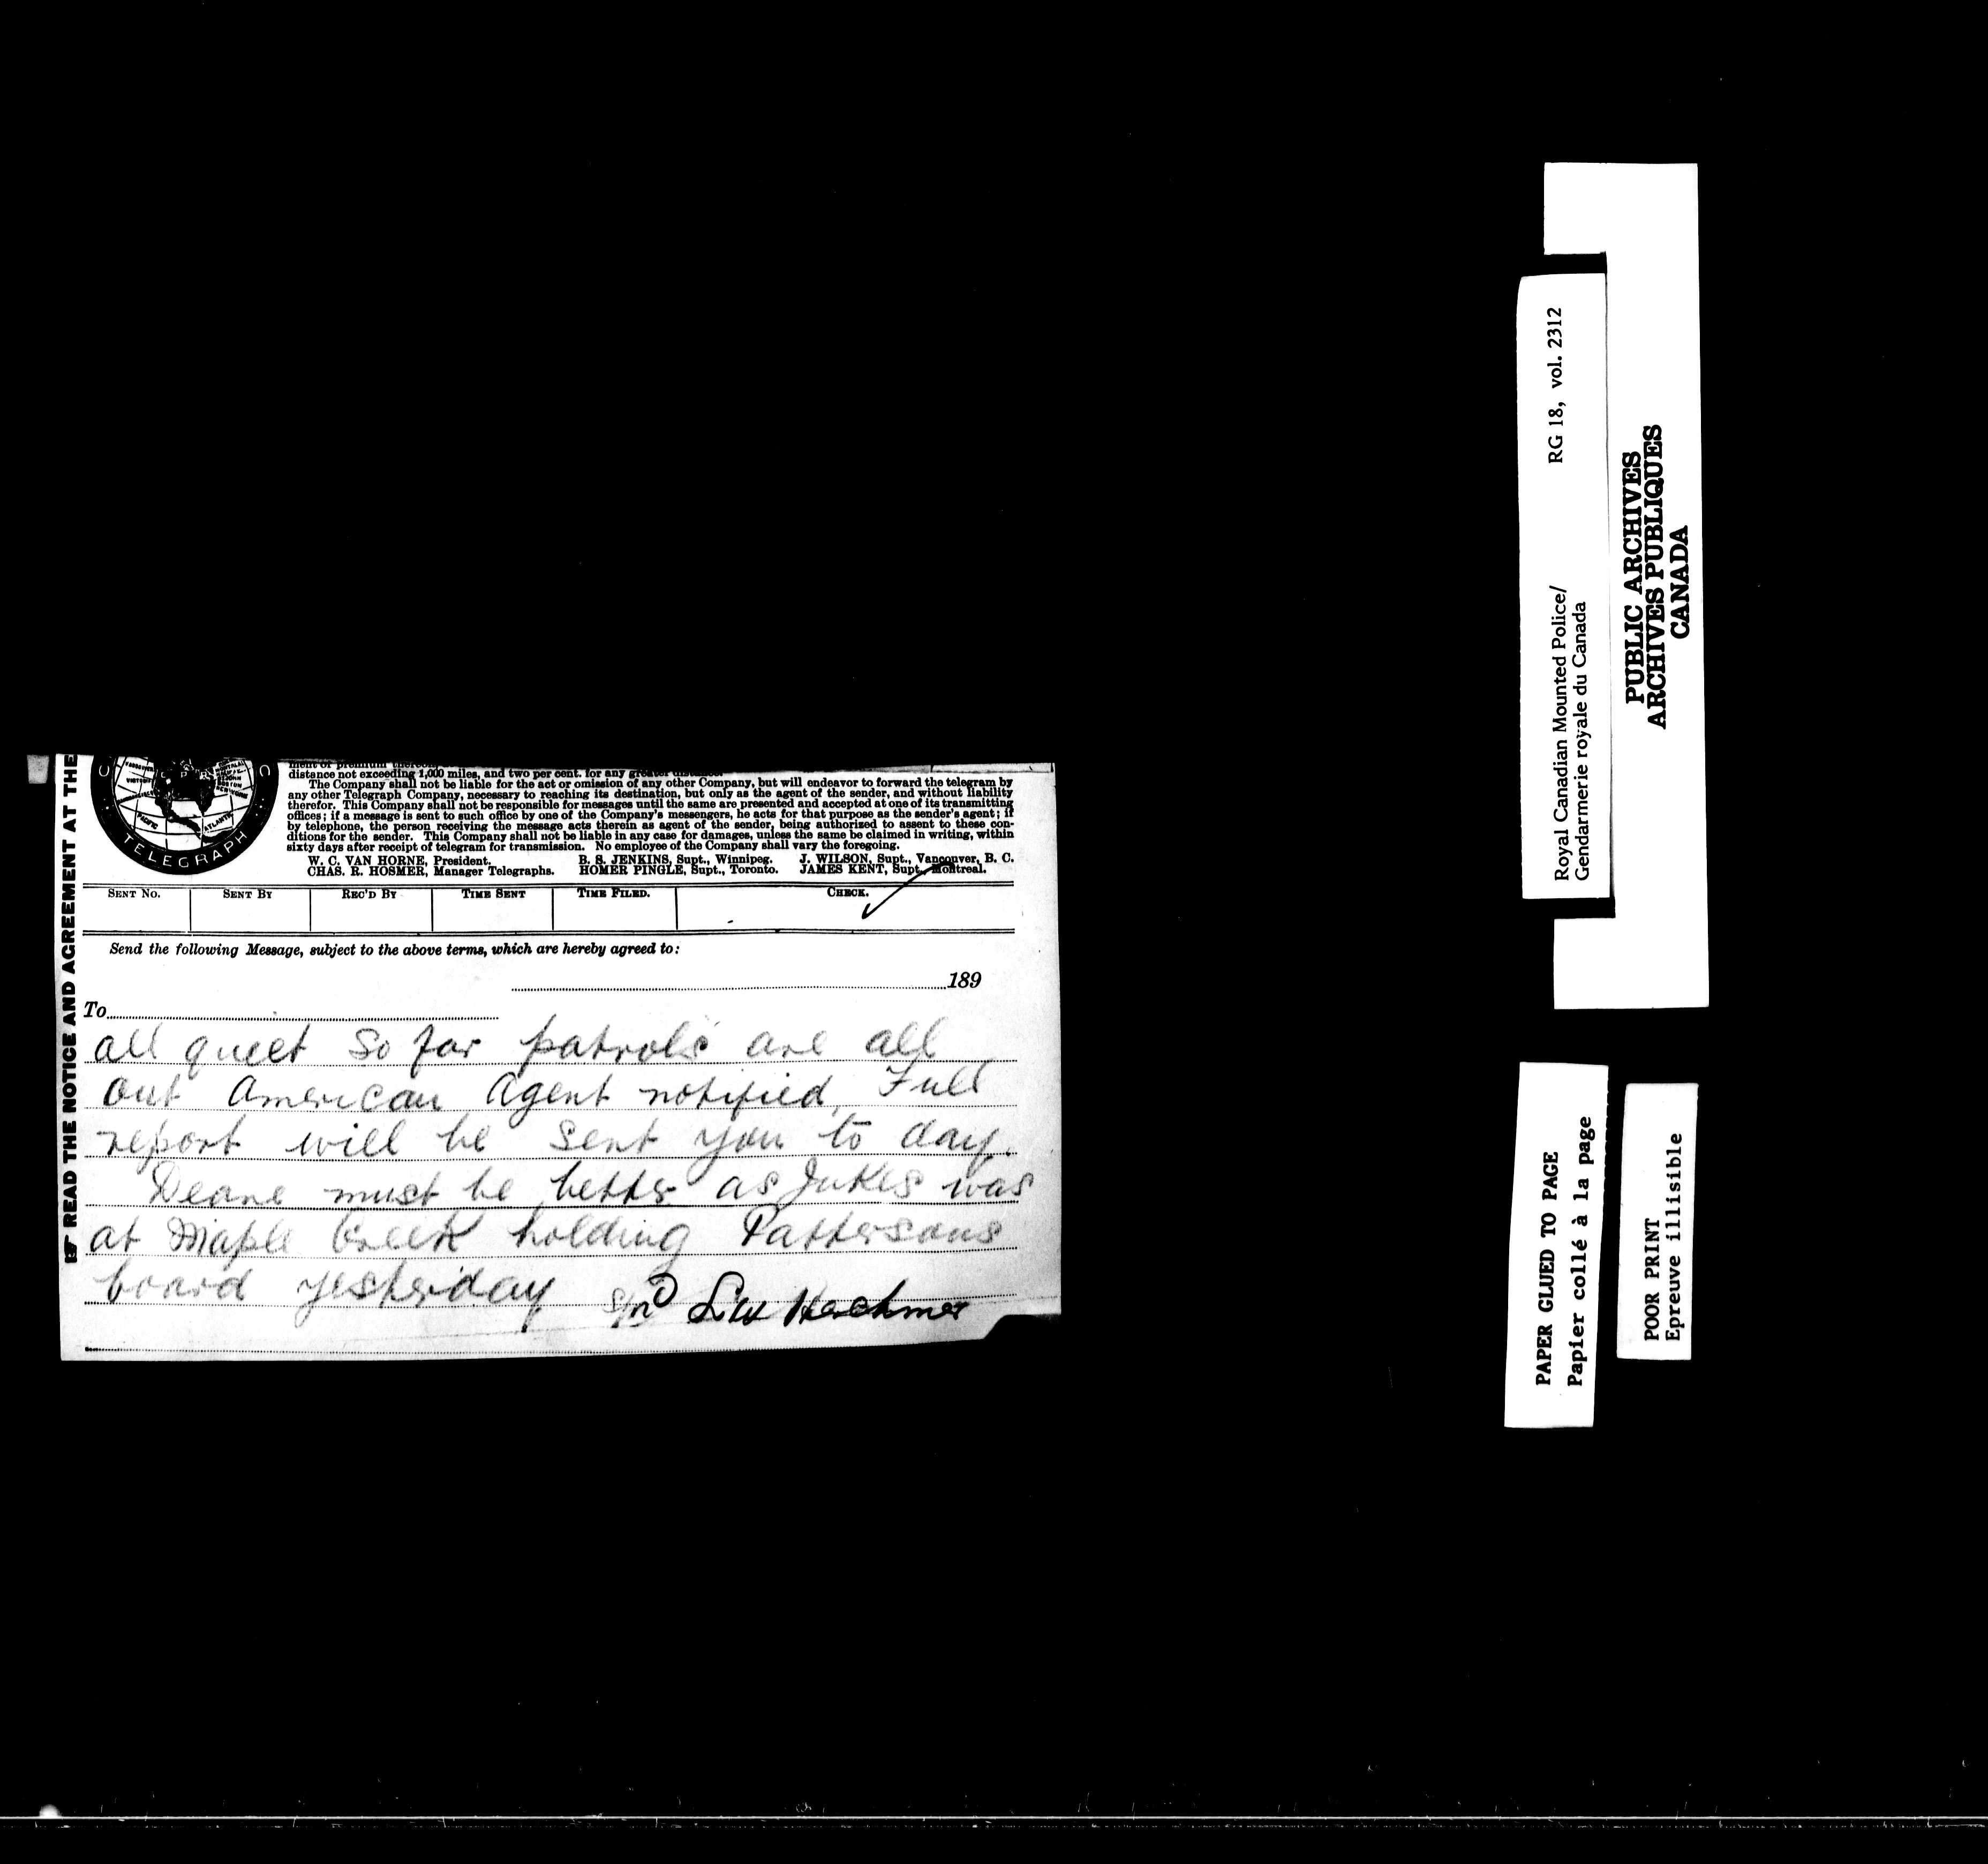 READ THE NOTICE AND AGREEMENT AT THE
TELEGRAPH
PACIFIC
ATLANTIC
distance not exceeding 1,000 miles, and two per cent. for any greater distance.
The Company shall not be liable for the act or omission of any other Company, but will endeavor to forward the telegram by
any other Telegraph Company, necessary to reaching its destination, but only as the agent of the sender, and without liability
therefor. This Company shall not be responsible for messages until the same are presented and accepted at one of its transmitting
offices; if a message is sent to such office by one of the Company's messengers, he acts for that purpose as the sender's agent; if
by telephone, the person receiving the message acts therein as agent of the sender, being authorized to assent to these con-
ditions for the sender. This Company shall not be liable in any case for damages, unless the same be claimed in writing, within
sixty days after receipt of telegram for transmission. No employee of the Company shall vary the foregoing.
W. C. VAN HORNE, President. B. S. JENKINS, Supt., Winnipeg. J. WILSON, Supt., Vancouver, B. C.
CHAS. R. HOSMER, Manager Telegraphs. HOMER PINGLE, Supt., Toronto. JAMES KENT, Supt., Montreal.
SENT NO. SENT BY REC'D BY TIME SENT TIME FILED. CHECK.
Send the following Message, subject to the above terms, which are hereby agreed to:
189
To
all quiet so far patrols are all
out American Agent notified. Full
report will be sent you to day.
Deane must be better as Jukes was
at Maple Creek holding Pattersons
board yesterday sgnd L W Herchmer
Royal Canadian Mounted Police/ RG 18, vol. 2312
Gendarmerie royale du Canada
PUBLIC ARCHIVES
ARCHIVES PUBLIQUES
CANADA
PAPER GLUED TO PAGE
Papier collé à la page
POOR PRINT
Epreuve illisible